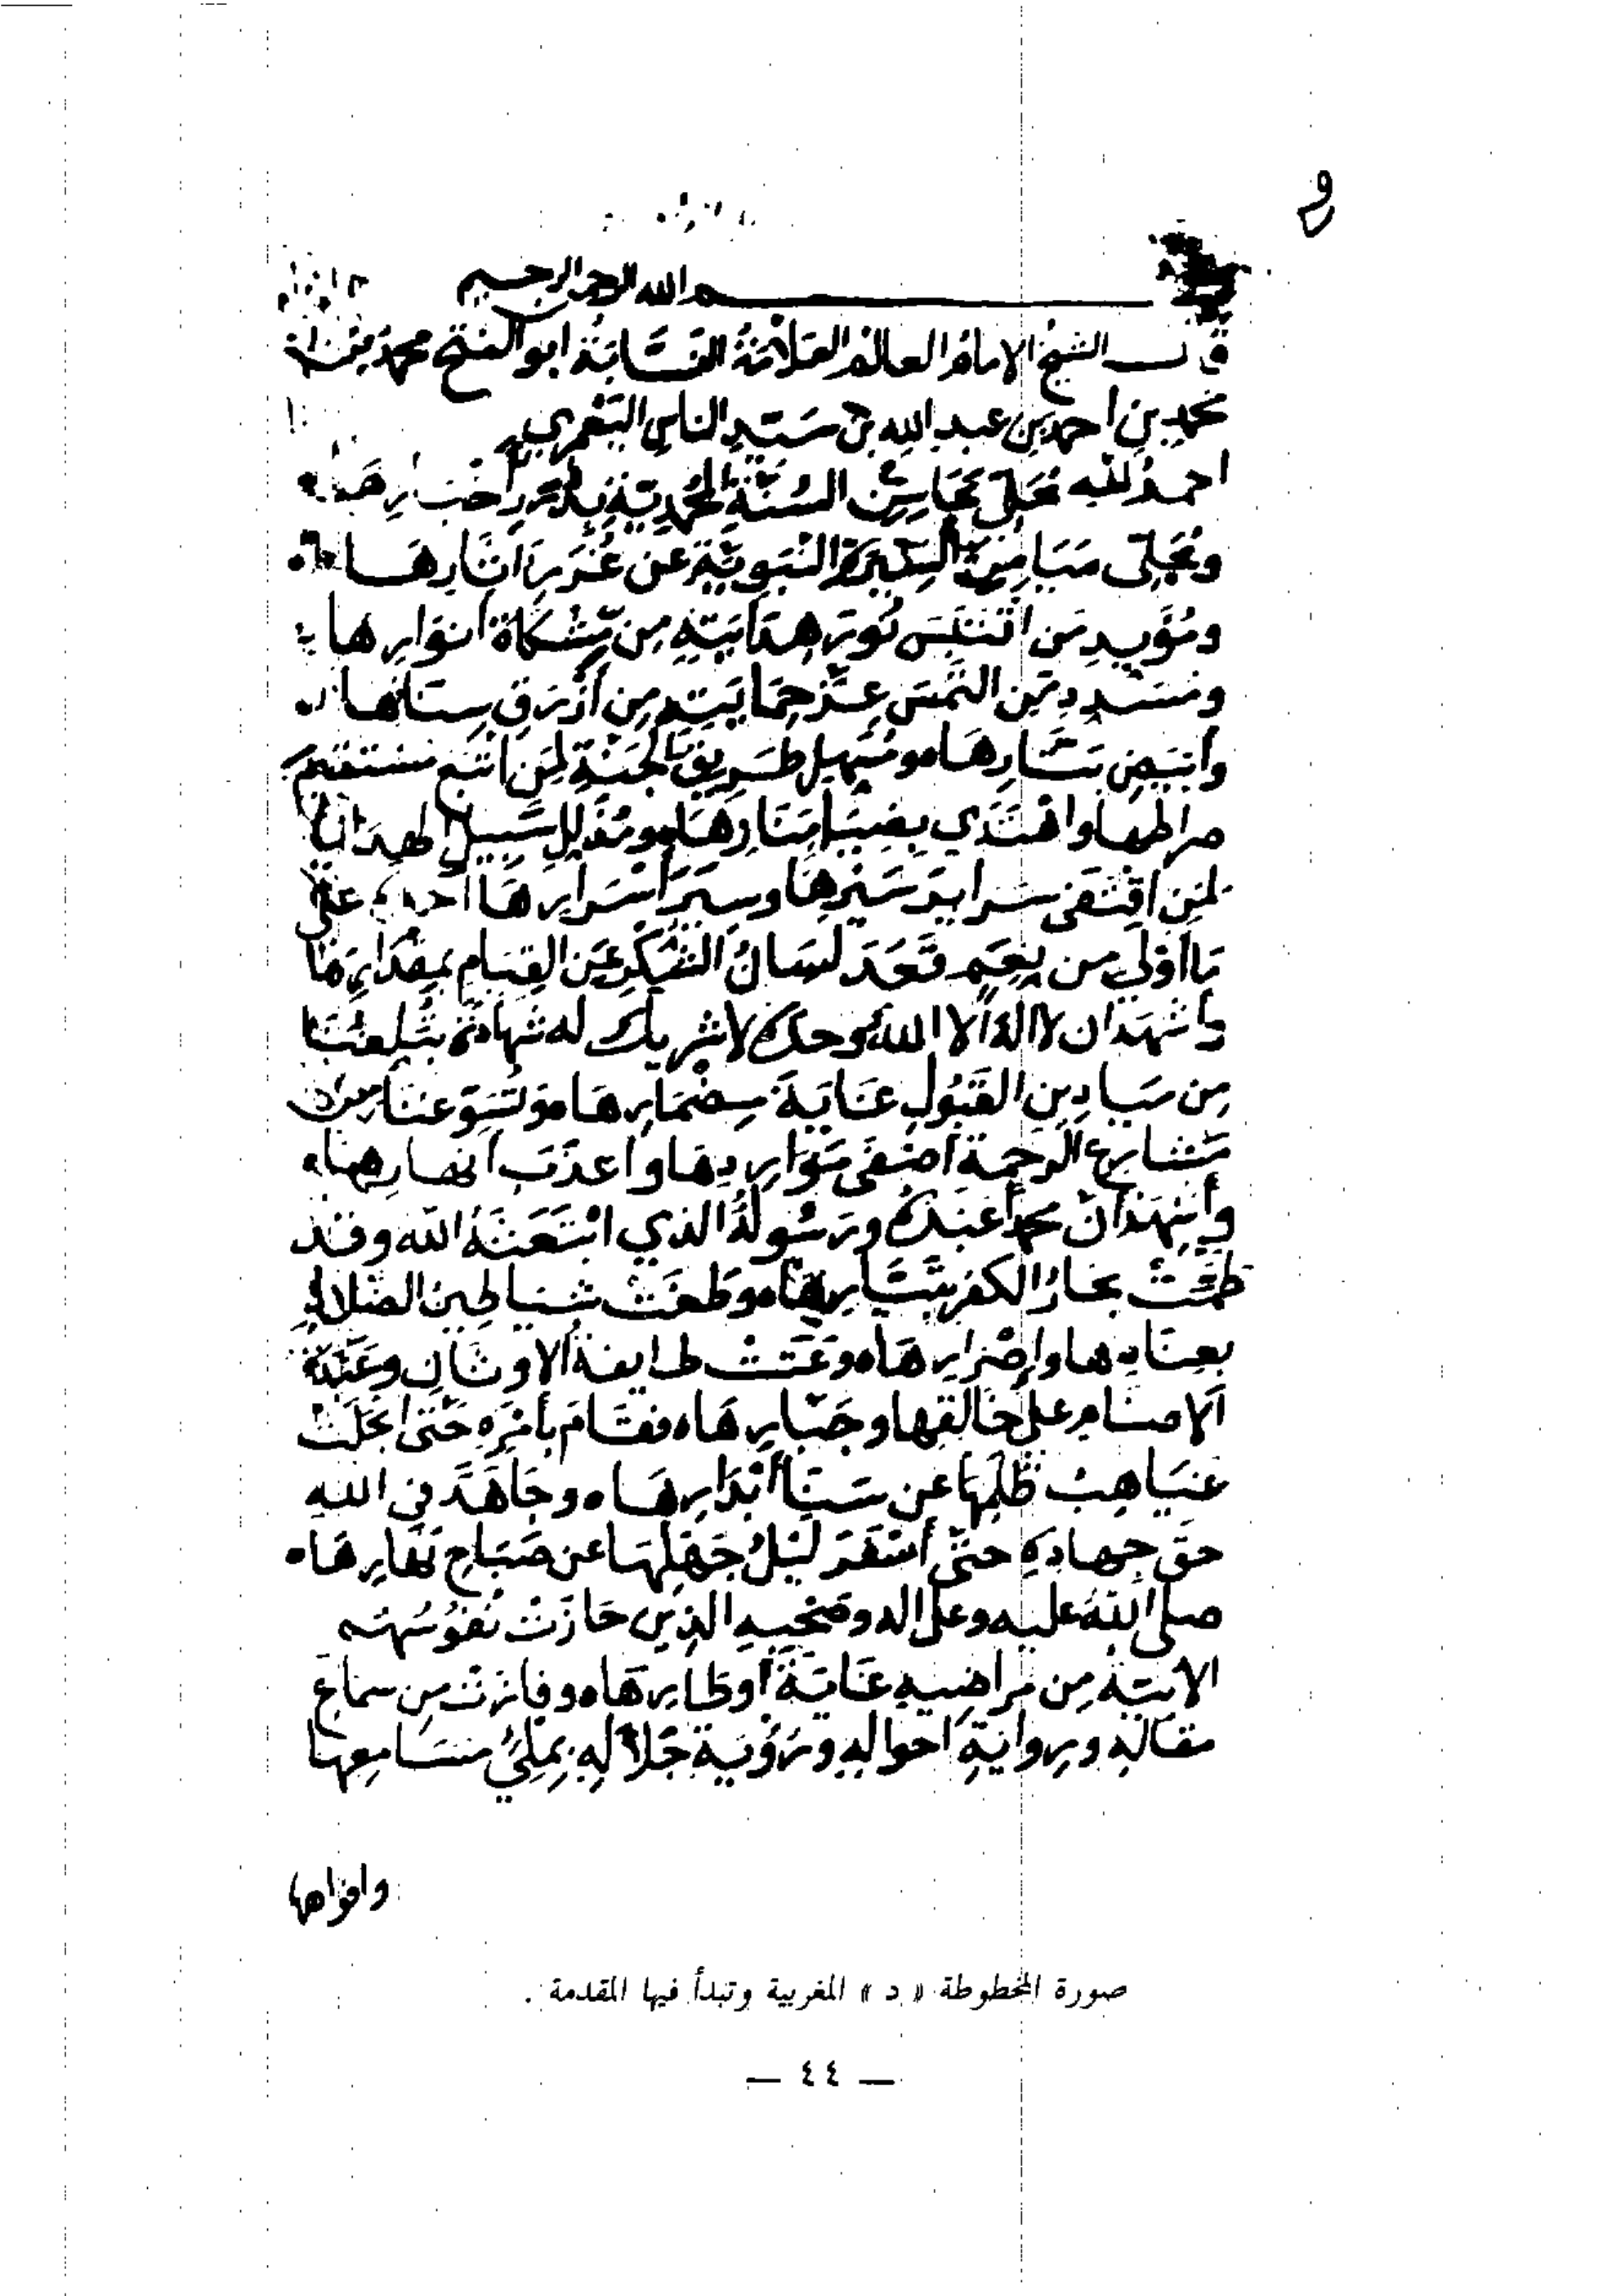 بسم الله الرحمن الرحيم
قال الشيخ الامام العالم العلامة النسابة ابو الفتح محمد بن
محمد بن احمد بن عبد الله بن سيد الناس اليعمري
احمد لله محلى محاسن السنة المحمدية بدرر اخبارها
ومجلى ميامن السيرة النبوية عن غرر اثارها
ومؤيد من اقتبس نور هدايته من مشكاة انوارها
ومسدد من التمس عز حمايته من ازرق سنانها
وابيض بتارها ومسهل طريق الجنة لمن اتبع مستقيم
صراطها واهتدى بضيا منارها ومذلل سبيل الهداية
لمن اقتفى سراير سيرها وسير اسرارها احمده على
ما اولى من نعم قعد لسان الشكر عن القيام بمقدارها
واشهد ان لا اله الا الله وحده لا شريك له شهادة تبلغنا
من ميادين القبول غاية مضمارها وتسوغنا من
مشارع الرحمة اصفى مواردها واعذب انهارها
وأشهد أن محمدا عبده ورسوله الذي ابتعثه الله وقد
طمت بحار الكفر بتيارها وطغت شياطين الضلال
بعنادها واصرارها وعتت طايفة الاوثان وعبدة
الاصنام على خالقها وجبارها فقام بأمره حتى انجلت
غياهب ظلمها عن سنا أبدارها وجاهد في الله
حق جهاده حتى أسفر ليل جهلها عن صباح نهارها
صلى الله عليه وعلى اله وصحبه الذين حازت نفوسهم
الابية من مراضيه غاية أوطارها وفازت من سماع
مقاله ورواية احواله ورؤية جلاله بملئ مسامعها
وافواهها
صورة المخطوطة « د » المغربية وتبدأ فيها المقدمة .
— ٤٤ —